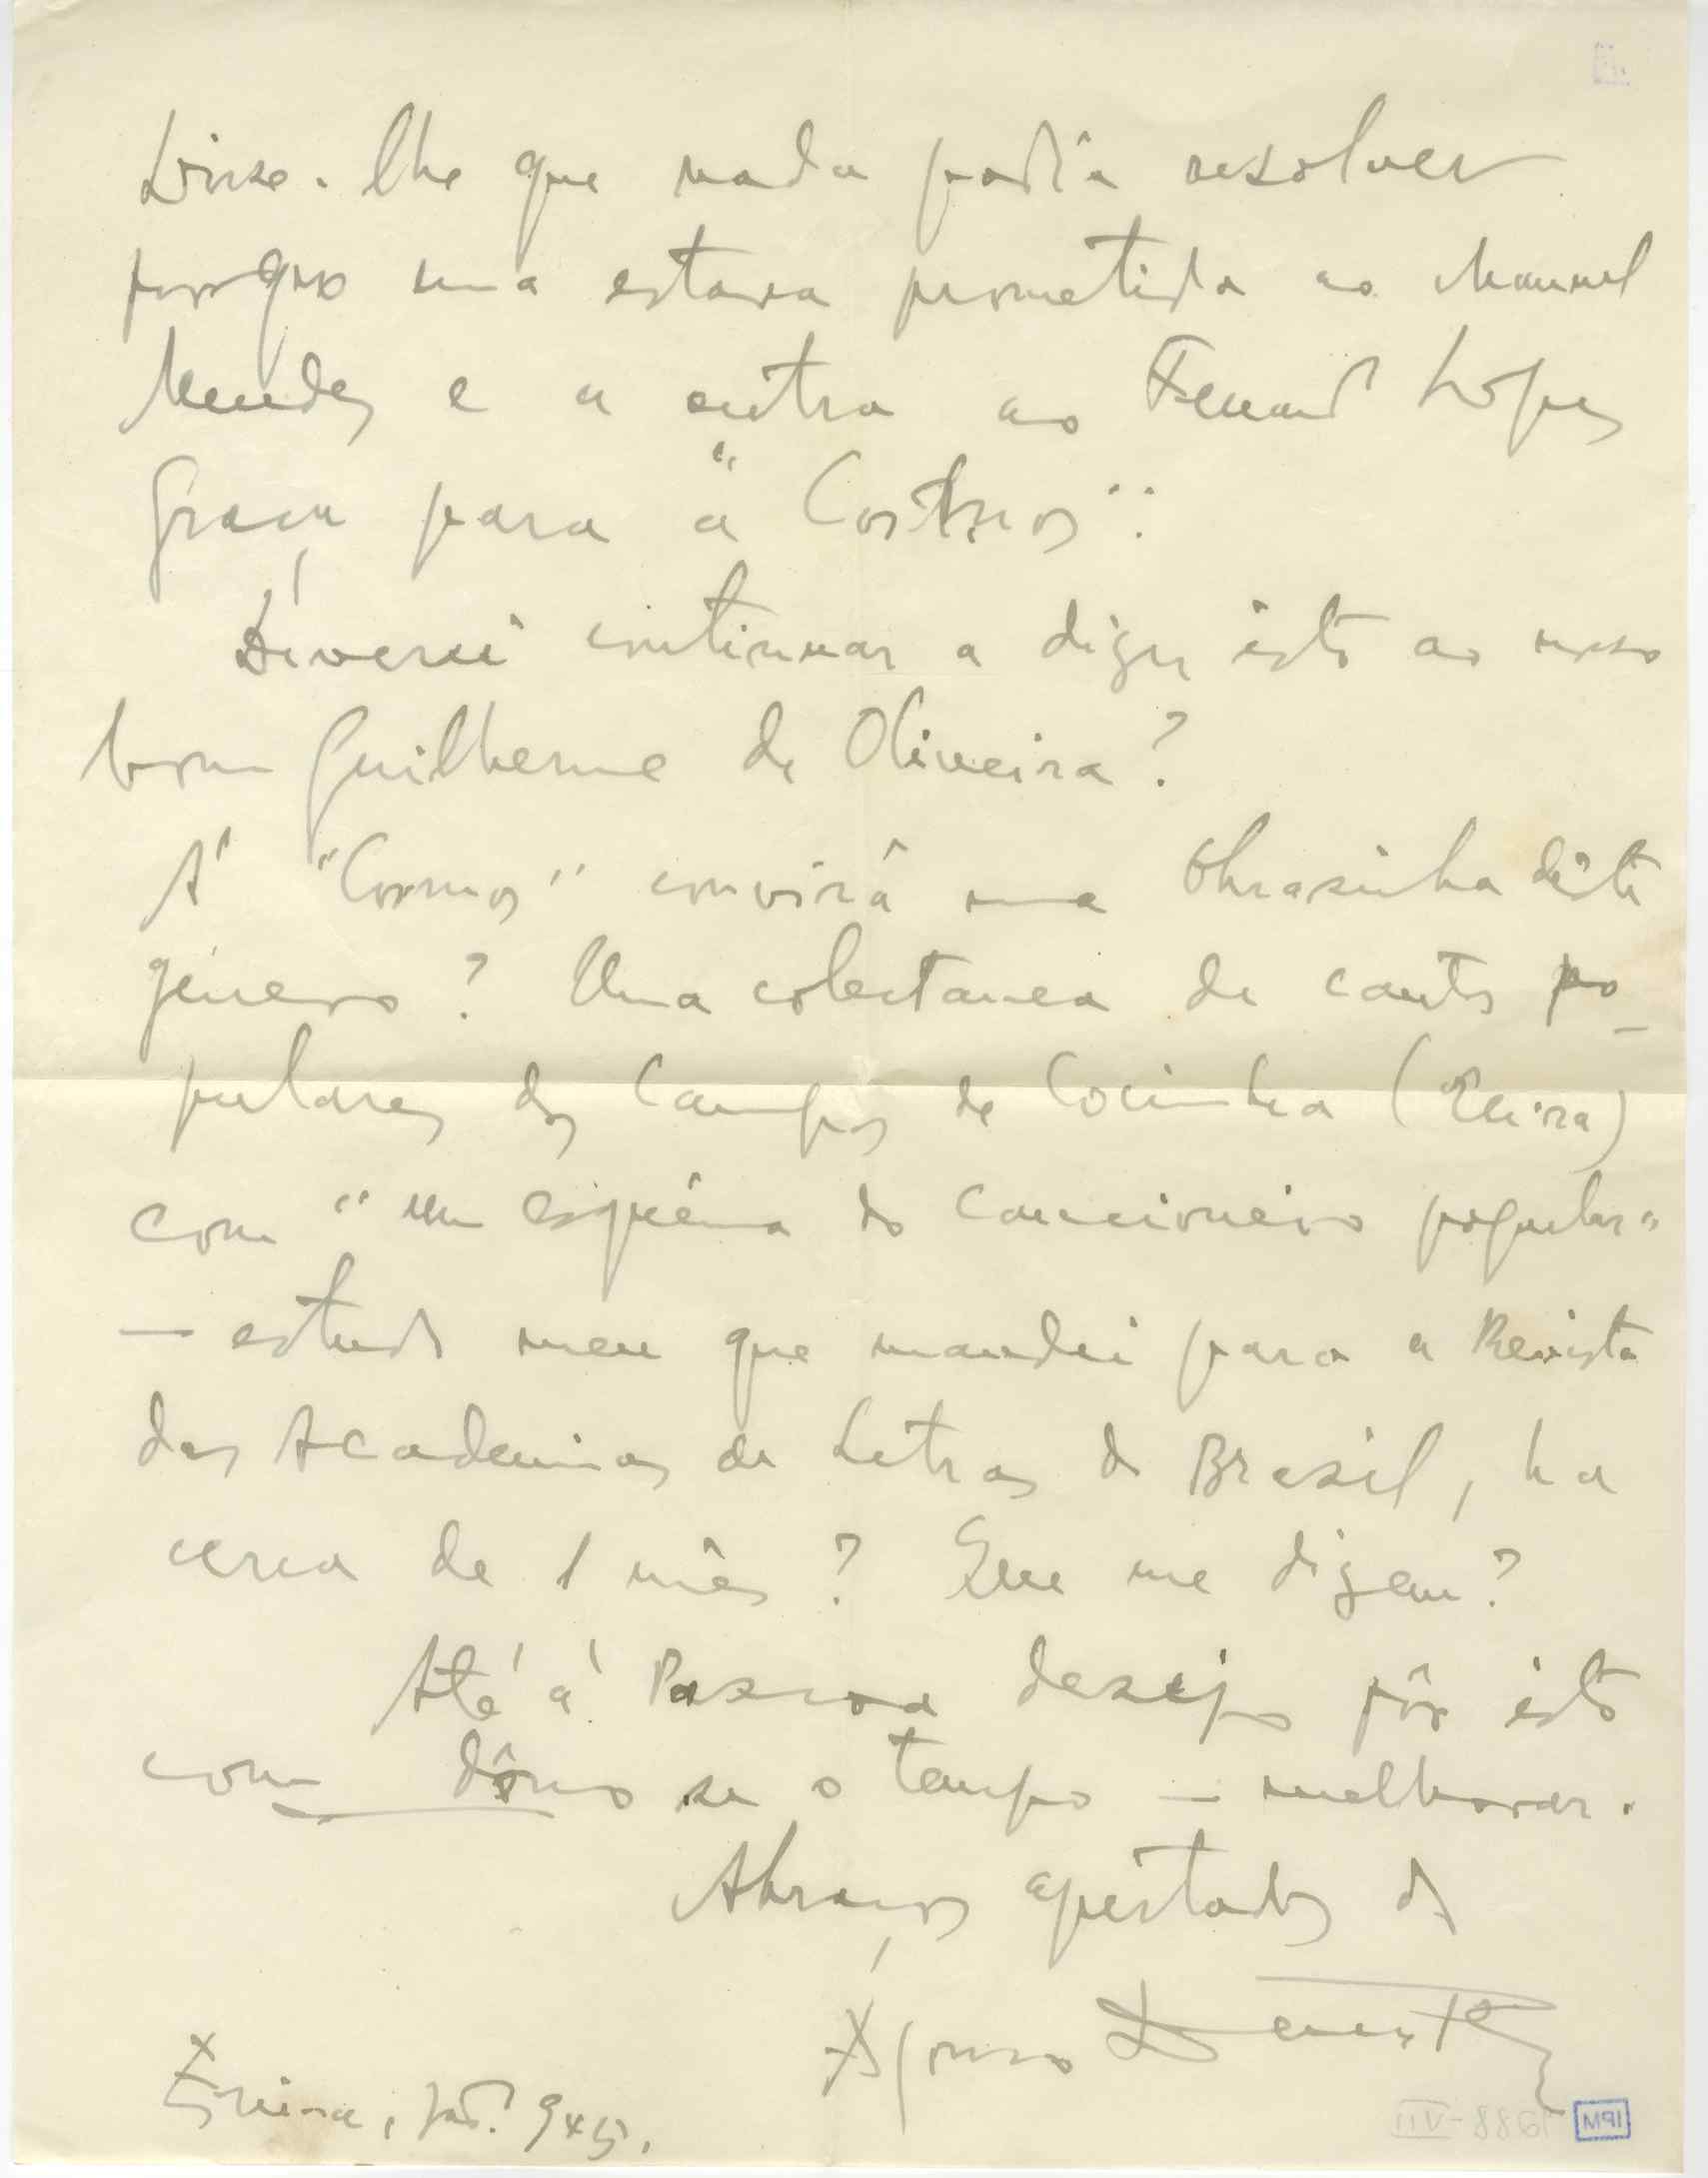 Disse-lhe que nada podia resolver
porque uma estava prometida ao Manuel
Mendes e a outra ao Fernando Lopes
Graça para a "Cosmos".
Deverei continuar a dizer isto ao nosso
bom Guilherme de Oliveira?
Á "Cosmos" convirá uma obrasinha dêste
género? Uma colectanea de cantos po-
pulares dos Campos de Coimbra (Ereira)
com "um esquêma do Cancioneiro popular"
— estudo meu que mandei para a Revista
das Academias de Letras do Brasil, ha
cerca de 1 mês? Que me dizem?
Até á Pascoa desejo pôr isto
com dôno se o tempo — melhorar.
Abraços apertados do
Afonso Duarte
Ereira, 945.
IPM